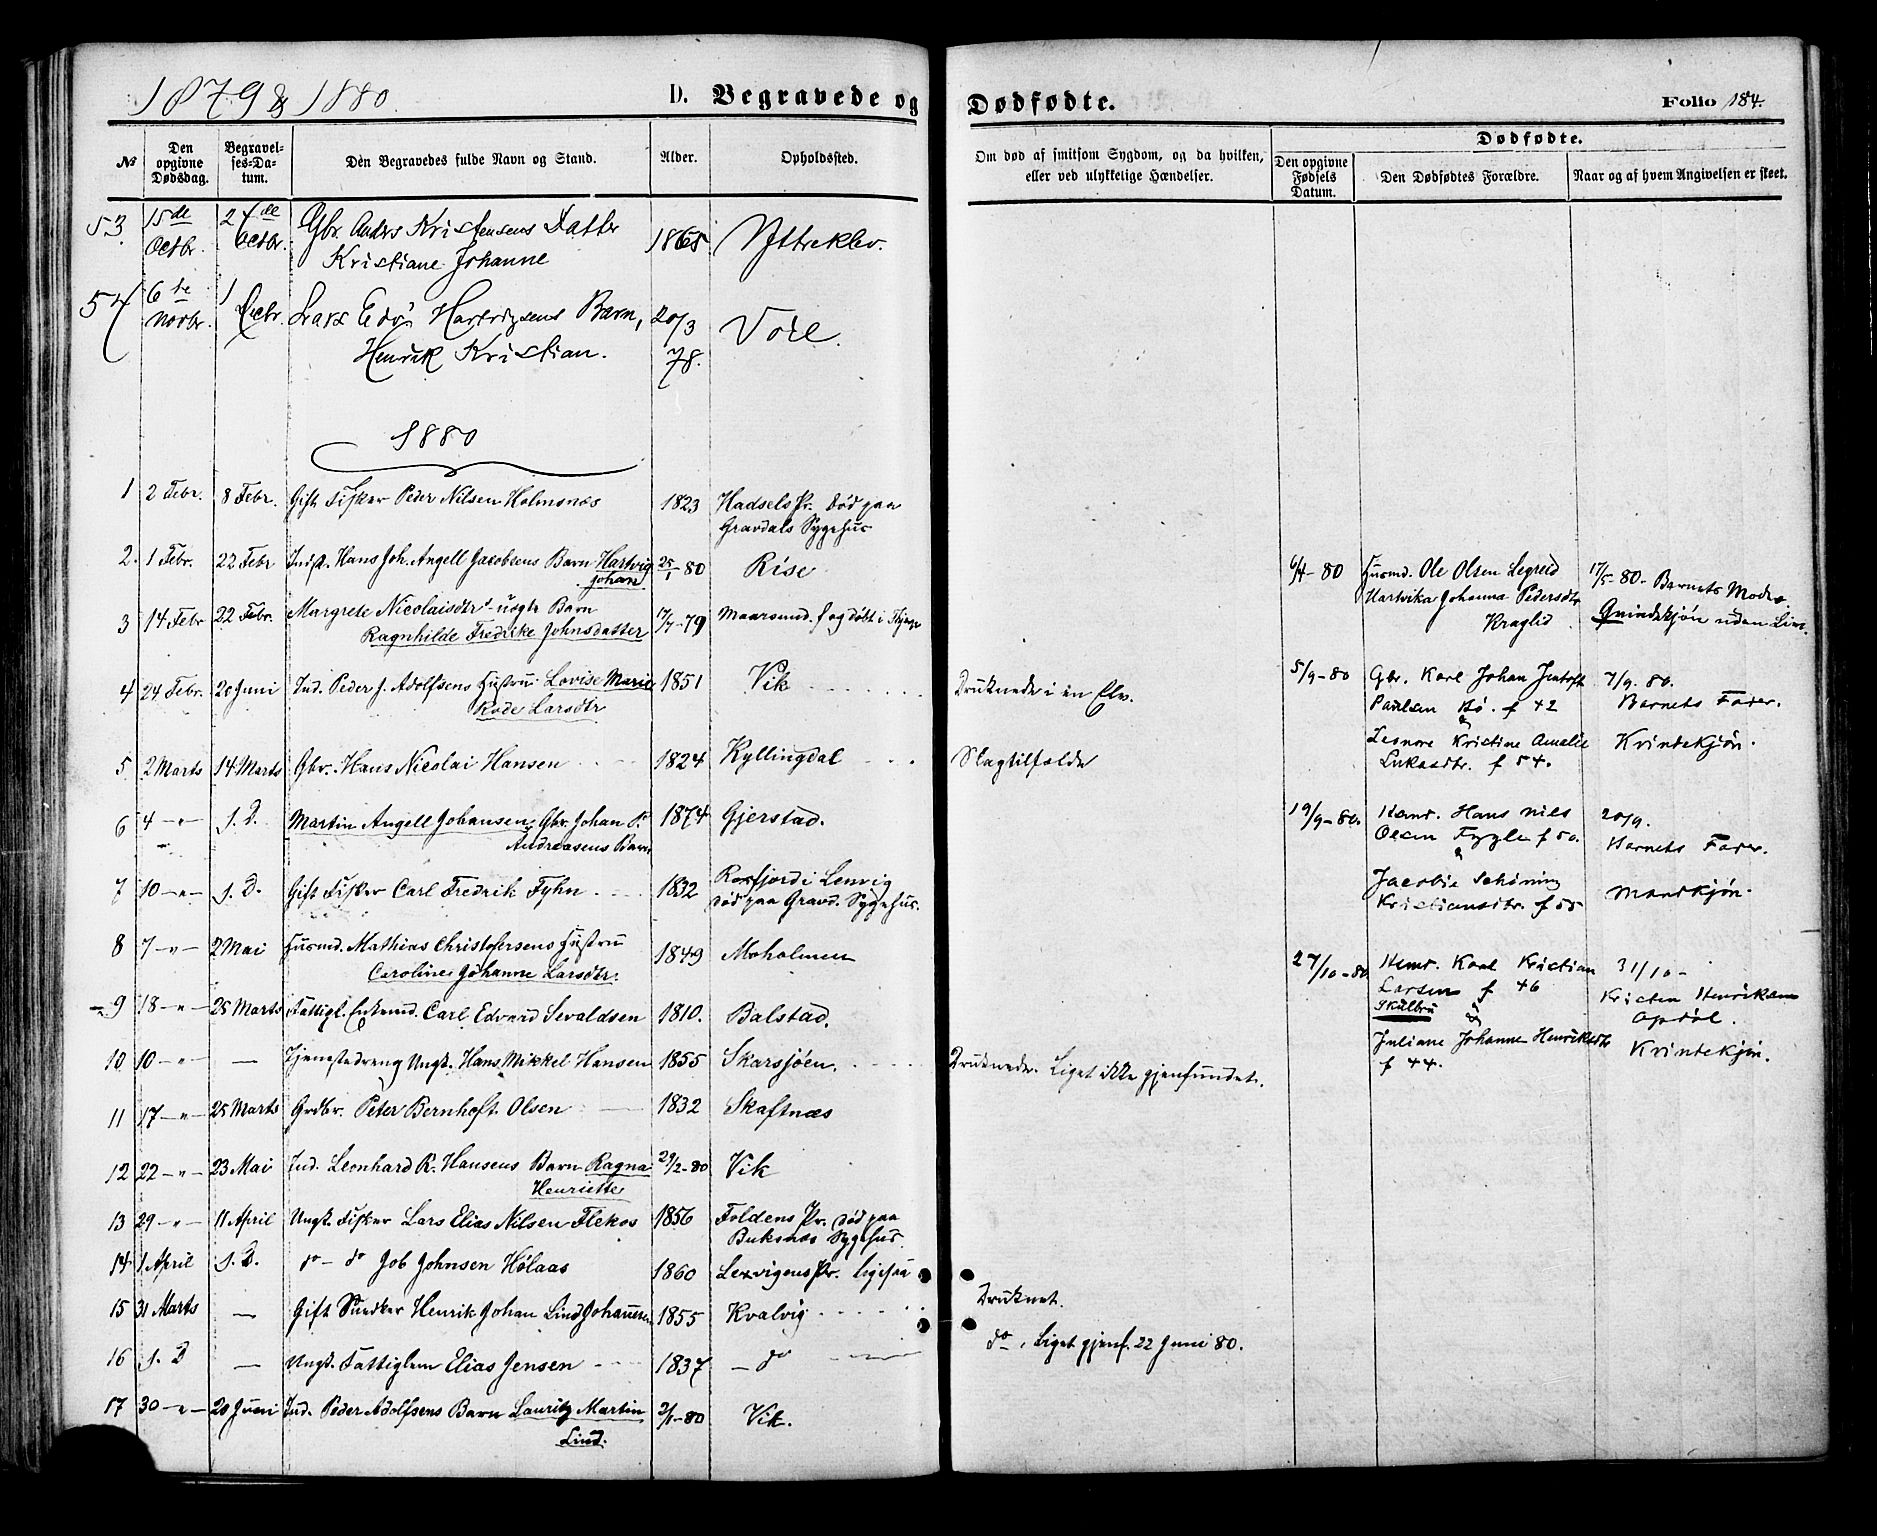 1879 & 1880.
D. Begravede og
Dødfødte.
Folio 184.
No
Den opgivne Dødsdag.
Begravelses-Datum.
Den Begravedes fulde Navn og Stand.
Alder.
Opholdssted.
Om død af smitsom Sygdom, og da hvilken, eller ved ulykkelige Hændelser.
Dødfødte.
Den opgivne Fødsels Datum.
Den Dødfødtes Forældre.
Naar og af hvem Angivelsen er skeet.
53 15de Octbr. 27de Octbr. Gbr. Anders Kristensens Datter 1865 Yttreklev.
Kristiane Johanne
54 6te Novbr. 1 Decbr. Lars Edv. Hartvigsens Barn, 20/3 78. Voie.
Henrik Kristian.
1880
1 2 Febr. 8 Febr. Gift Fisker Peder Nilsen Holmsnæs 1823 Hadsels Pr. død paa
Gravdals Sygehus
2. 1 Febr. 22 Febr Inds. Hans Joh. Angell Jacobsens Barn Hartvig 25/1 80 Rise
Johan
3 14 Febr 22 Febr. Margrete Nicolaisdtr uægte Barn 17/7-79 Maarsund f og døbt i
Ragnhilde Fredrike Johnsdatter
4 24 Febr. 20 Juni Ind. Peder J. Adolfsens Hustru Lovise Marie 1851 Vik Druknede i en Elv.
Larsdtr
5 2 Marts 14 Marts Gbr. Hans Nicolai Hansen 1824 Kyllingdal Slagtilfælde
6 4 -"- s. D. Martin Angell Johansen, Gbr. Johan P. 1874 Gjerstad.
Andreasens Barn
7 10 -"- s. D. Gift Fisker Carl Fredrik Fyhn 1832 Rosfjord i Lenvig
død paa Gravd. Sygehus.
8 7 -"- 2 Mai Husmd. Mathias Christofersens Hustru 1849 Moholmen
Caroline Johanne Larsdtr.
9 18 -"- 25 Marts Fattigl. Enkemd. Carl Edvard Sevaldsen 1810. Balstad.
10 10 -"- — Tjenestedreng Ungk. Hans Mikkel Hansen 1855 Skarsjøen. Druknede. Liget ikke gjenfundet.
11 17 -"- 25 Marts Grdbr. Peter Bernhoft Olsen 1832 Skaftnæs
12 22 -"- 23 Mai Ind. Leonhard R. Hansens Barn Ragna 29/2-80 Vik
Henriette
13 29 -"- 11 April Ungk. Fisker Lars Elias Nilsen Flekos 1856 Foldens Pr. død paa
Buksnæs Sygehus
14 1 April s. D. do - do Job Johnsen Hølaas 1860 Pr. ligesaa
15 31 Marts — Gift Snedker Henrik Johan Lind Johannesen 1855 Kvalvig Druknet.
16 s. D — Ungk. Fattiglem Elias Jensen 1837 - do do, Liget gjenf. 22 Juni 80.
17 30 -"- 20 Juni Ind. Peder Adolfsens Barn Lauritz Martin 2/1-80 Vik.
Lind.
6/4-80 Husmd. Ole Olsen Legreid 17/5-80. Barnets Moder.
Hartvika Johanna Pedersdtr Qvindekjøn uden Liv.
5/9-80 Gbr. Karl Johan Jentoft 7/9. 80.
Paulsen Bø. f 42 Barnets Fader.
&
Leonore Kristine Amalie Kvindekjøn.
Lukasdtr. f 54.
19/9-80. Hans Nils 20/9.
Olsen Fygle f 50. Barnets Fader.
&
Jacobie Schøning Mandkjøn.
Kristiansdtr. f 55
27/10-80 Karl Kristian 31/10 -
Larsen f 46 Kristen Henriksen
Skulbru Opdøl.
&
Juliane Johanne Henriksdtr Kvindekjøn.
f 44.